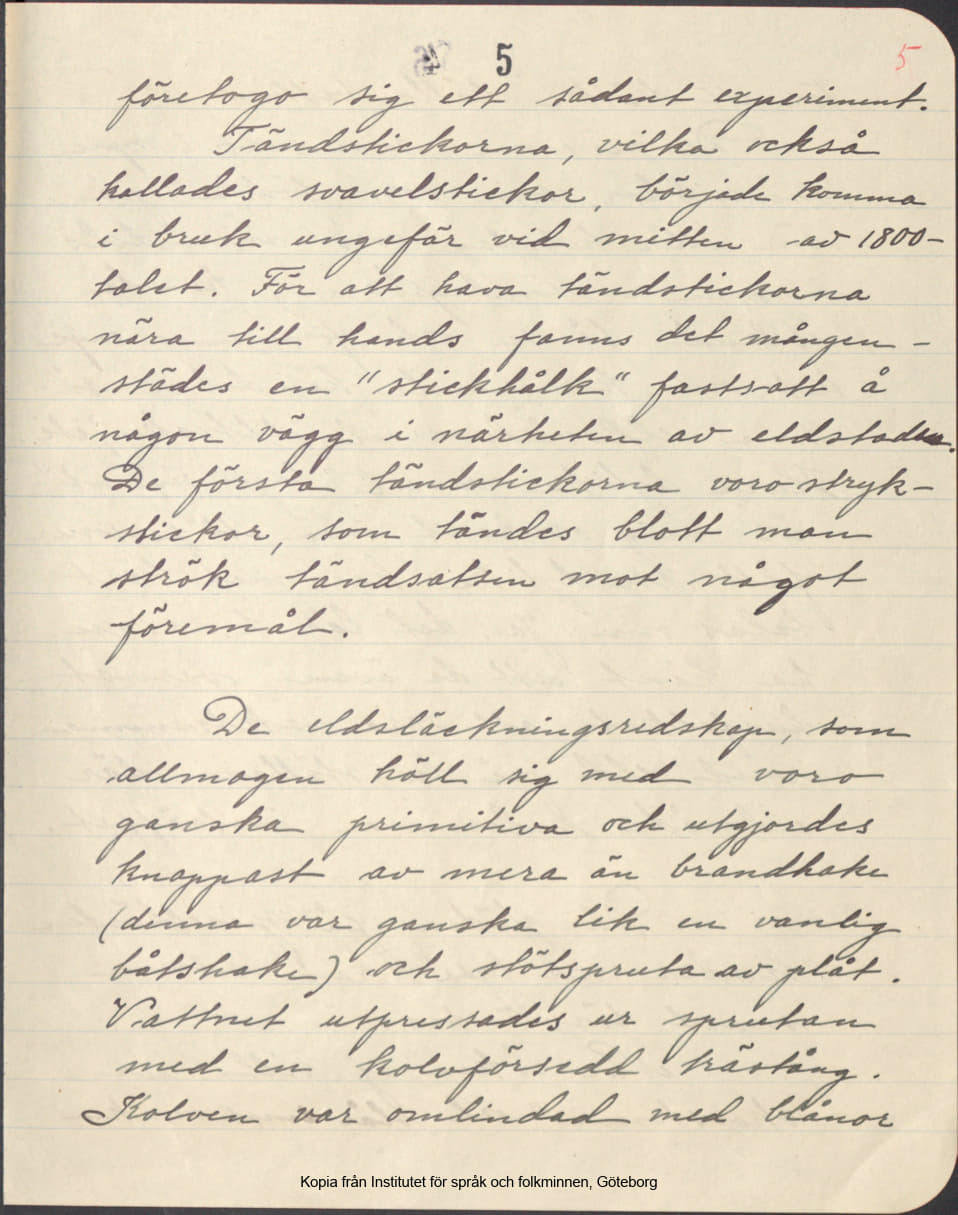 5 5
företogo sig ett sådant experiment.
Tändstickorna, vilka också
kallades svavelstickor, började komma
i bruk ungefär vid mitten av 1800-
talet. För att hava tändstickorna
nära till hands fanns det mången-
städes en "stickhålk" fastsatt å
någon vägg i närheten av eldstaden.
De första tändstickorna voro stryk-
stickor, som tändes blott man
strök tändsatsen mot något
föremål.
De eldsläckningsredskap, som
allmogen höll sig med voro
ganska primitiva och utgjordes
knappast av mera än brandhake
(denna var ganska lik en vanlig
båtshake) och stötspruta av plåt.
Vattnet utpressades ur sprutan
med en kolvförsedd trästång.
Kolven var omlindad med blånor
Kopia från Institutet för språk och folkminnen, Göteborg